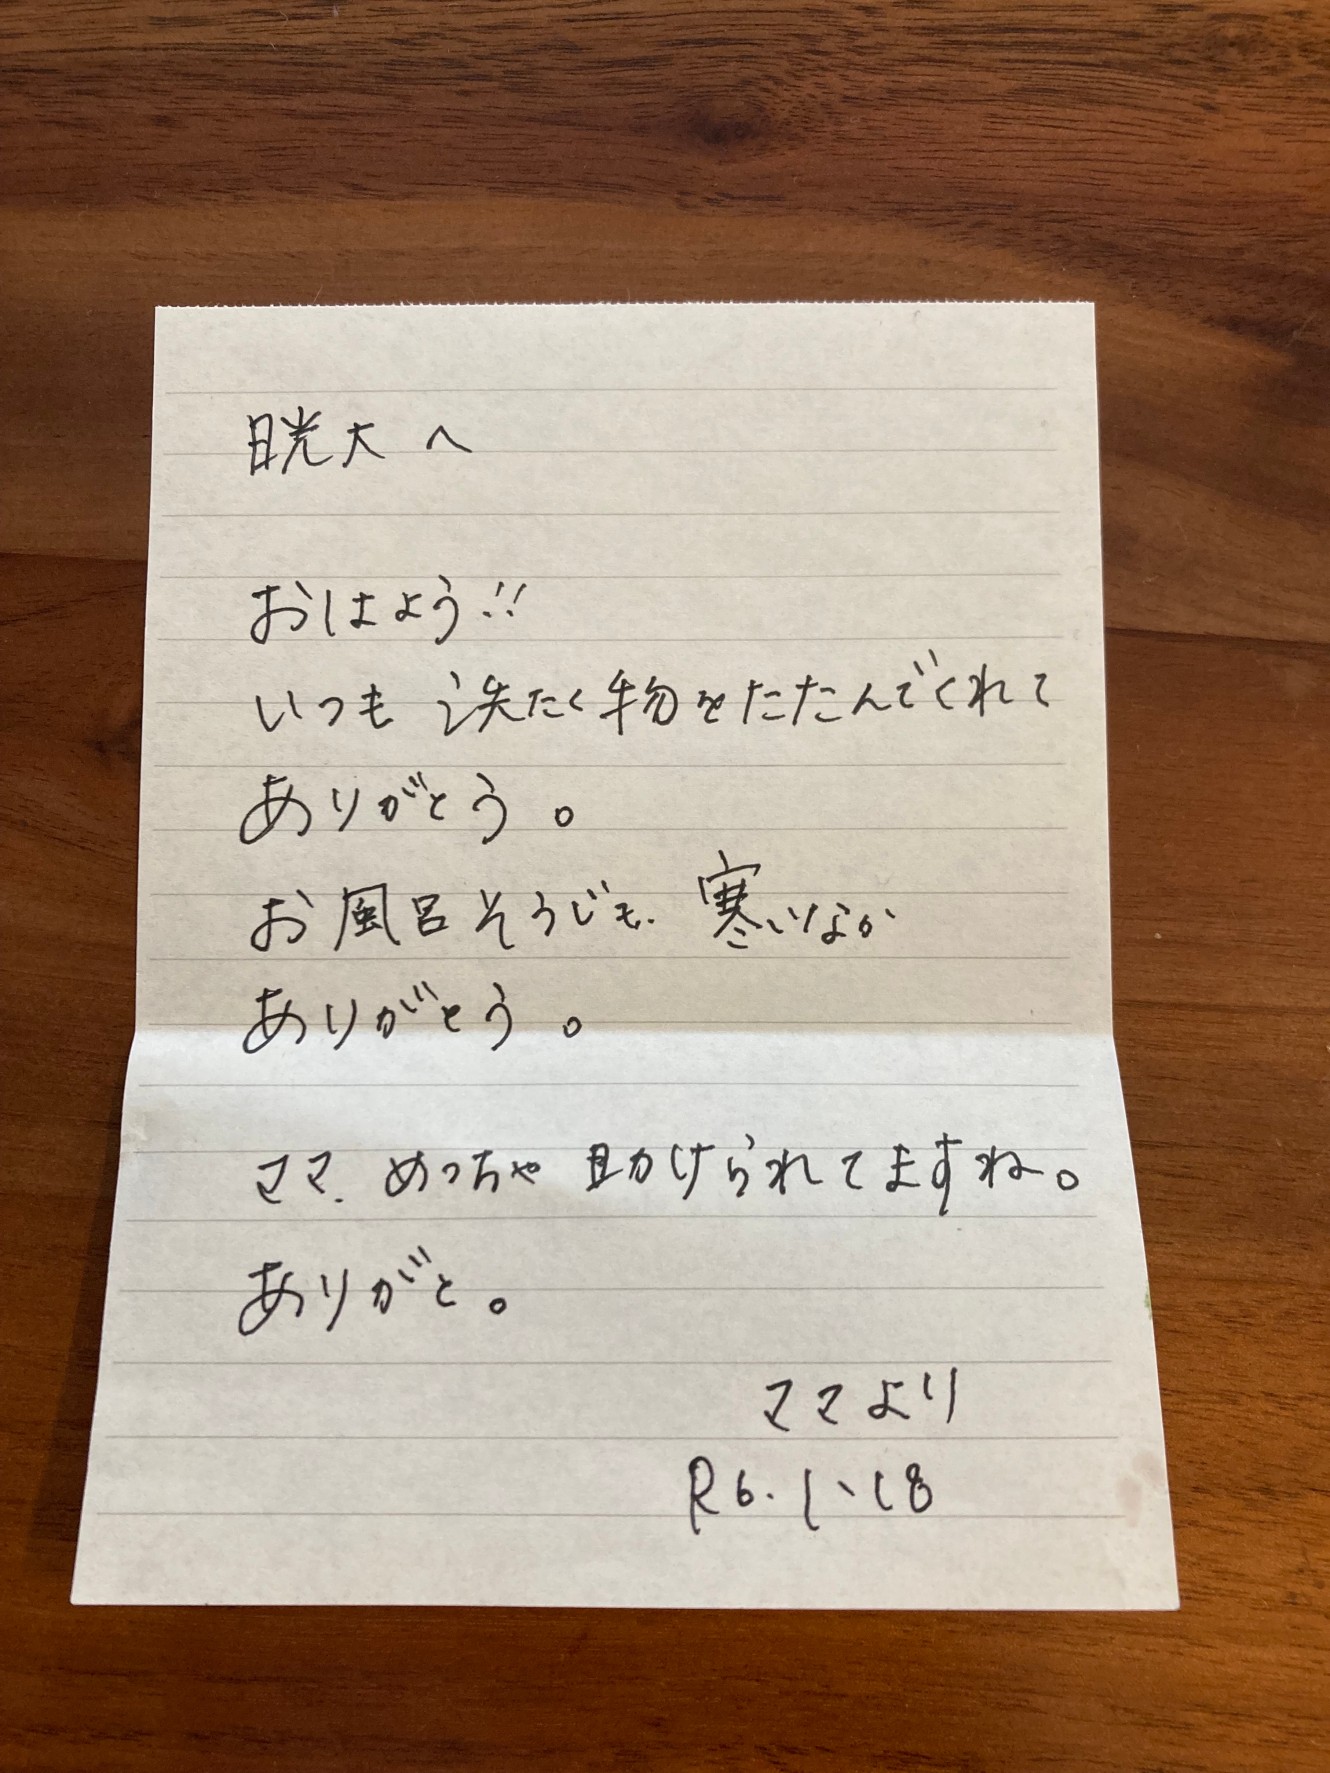 晄大へ
おはよう!!
いつも洗たく物をたたんでくれて
ありがとう。
お風呂そうじも、寒いなか
ありがとう。
ママ、めっちゃ助けられてますね。
ありがと。
ママより
R6.1.18